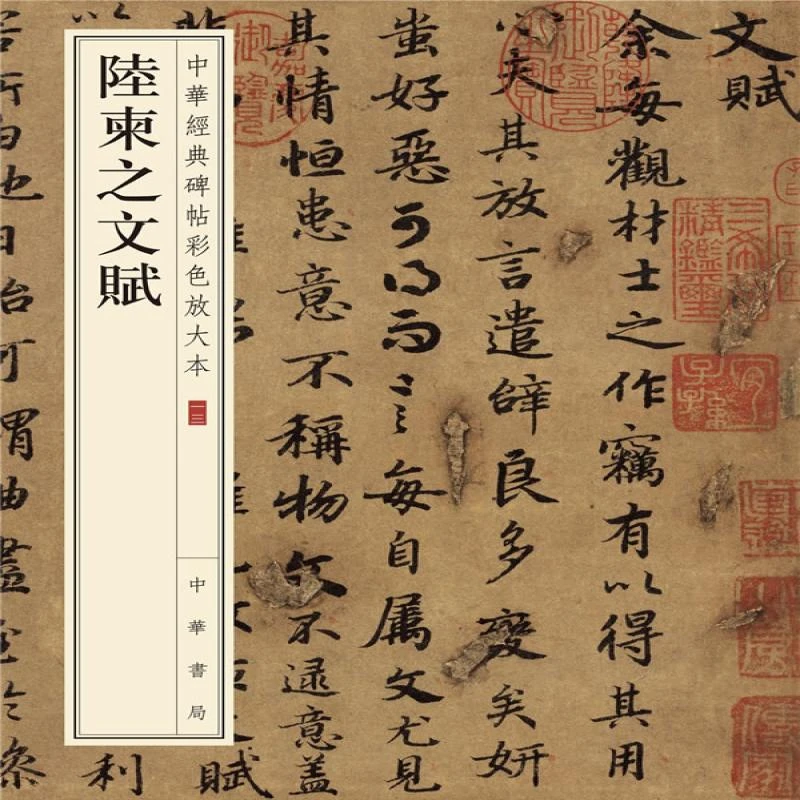 文賦
余每觀材士之作竊有以得其用
心矣其放言遣辭良多變矣妍
蚩好惡可得而言每自属文尤見
其情恒患意不稱物文不逮意蓋
賦
利
所由也
殆可謂曲盡
中華經典碑帖彩色放大本 一三
中華書局
陸柬之文賦